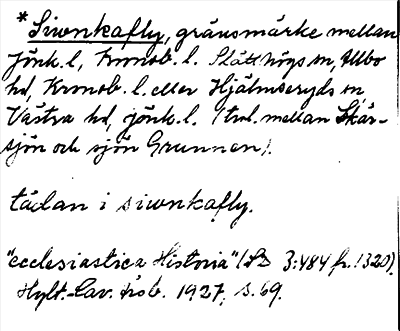 *Siwnkafly, gränsmärke mellan
Jönk. l., Kronob. l. Slätthögs sn, Allbo
hd, Kronob. l. eller Hjälmseryds sn
Västra hd, Jönk. l. (trol. mellan Skär-
sjön och sjön Grunnen).
tädan i siwnkafly.
"ecclesiastica Historia" (SD 3:484 fr. 1320).
Hylt.-Cav. hsb. 1927, s. 69.